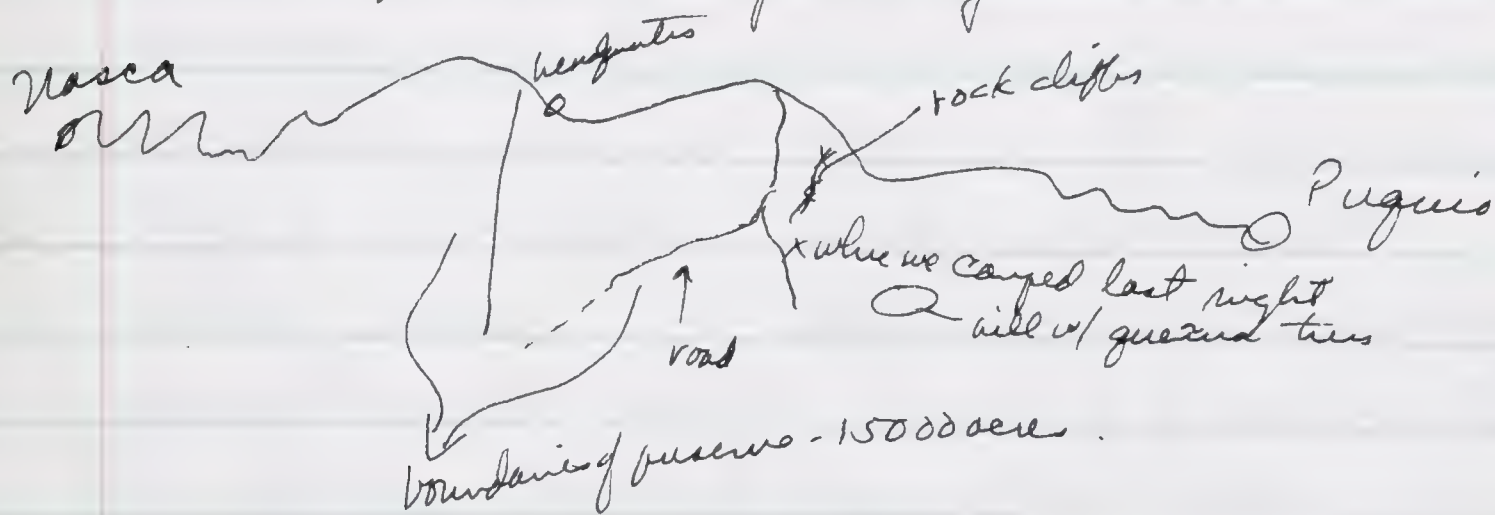 Nasca
headquatrs
rock cliffs
Puquio
x where we camped last night
hill w/ queñua trees
road
boundaries of preserve - 15000 acres.